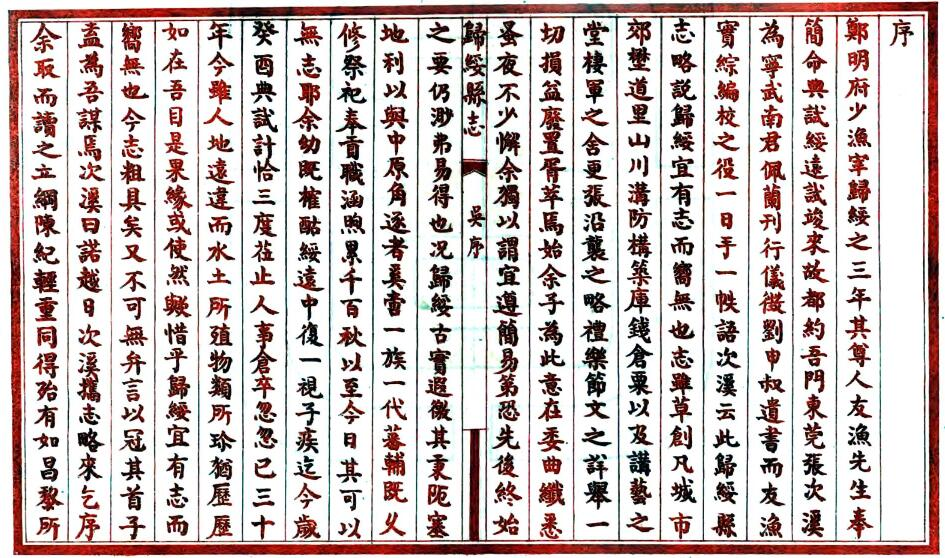 序
鄭明府少漁宰歸綏之三年其尊人友漁先生奉
簡命典試綏遠試竣來故都約吾門東莞張次溪
為寧武南君佩蘭刊行儀徵劉申叔遺書而友漁
實綜編校之役一日手一帙語次溪云此歸綏縣
志略説歸綏宜有志而嚮無也志雖草創凡城市
郊壄道里山川溝防構築庫錢倉粟以及講藝之
堂棲軍之舍更張沿襲之略禮樂節文之詳舉一
切損益廢置胥萃焉始余子為此意在委曲纖悉
蚤夜不少懈余獨以謂宜遵簡易第恐先後終始
歸綏縣志 吳序
之要仍渺弗易得也況歸綏古實遐徼其秉阨塞
地利以與中原角逐者奚啻一族一代蕃輔既乂
修祭祀奉貢職涵煦累千百秋以至今日其可以
無志耶余幼既榷酤綏遠中復一視子疾迄今歲
癸酉典試計恰三度莅止人事倉卒忽忽已三十
年今雖人地遠違而水土所殖物類所珍猶歷歷
如在吾目是果緣或使然歟惜乎歸綏宜有志而
嚮無也今志粗具矣又不可無弁言以冠其首子
盍為吾謀焉次溪曰諾越日次溪攜志略來乞序
余取而讀之立綱陳紀輕重同得殆有如昌黎所